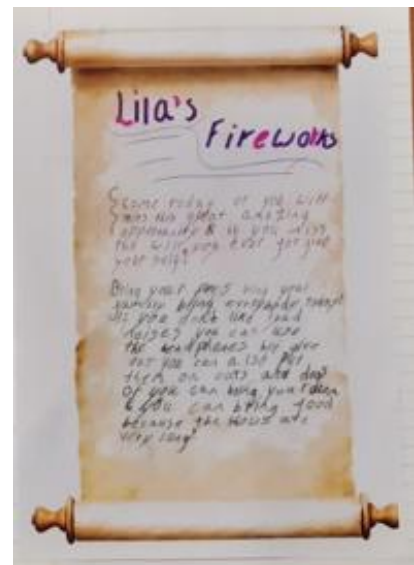 Lila's
Fireworks
Come today or you will
miss this great amazing
opportunity & if you miss
this will you ever forgive
your self?
Bring your pets bring your
family bring everybody
if you don't like loud
noises you can use
the headphones we give
out you can also put
them on cats and dogs
Or you can bring your own
& you can bring food
because the shows are
very long